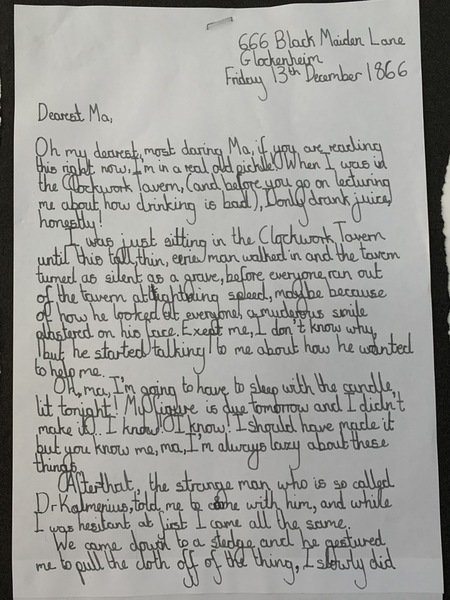 666 Black Maiden Lane
Glockenheim
Friday 13th December 1866
Dearest Ma,
Oh my dearest, most daring Ma, if you are reading
this right now, I'm in a real old pickle! When I was in
the Clockwork Tavern, (and before you go on lecturing
me about how drinking is bad), I only drank juice,
honestly!
I was just sitting in the Clockwork Tavern
until this tall, thin, eerie man walked in and the tavern
turned as silent as a grave, before everyone ran out
of the tavern at lightning speed, maybe because
of how he looked at everyone, a muderous smile
plastered on his face. Exept me, I don't know why,
but he started talking to me about how he wanted
to help me.
Oh, ma, I'm going to have to sleep with the candle
lit tonight! My figure is due tomorrow and I didn't
make it... I know! I know! I should have made it
but you know me, ma, I'm always lazy about these
things.
After that, the strange man who is so called
Dr Kalmenius, told me to come with him, and while
I was hesitant at first I came all the same.
We came down to a sledge and he gestured
me to pull the cloth off of the thing, I slowly did